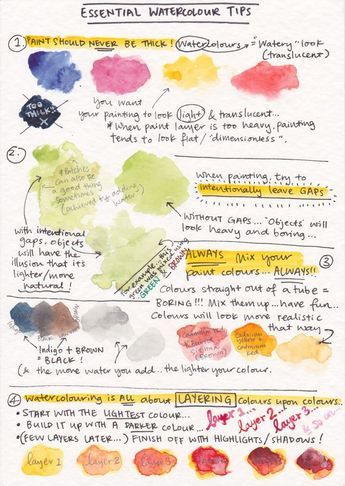 ESSENTIAL WATERCOLOUR TIPS
1. PAINT SHOULD NEVER BE THICK! Watercolours = "Watery" look
(translucent)
TOO
THICK
X
You want
your painting to look light & translucent...
* When paint layer is too heavy, painting
tends to look flat / "dimensionless".
2.
* Patches
can also be
a good thing
sometimes
(achieved by adding
water)
When painting, try to
intentionally leave GAPS
WITHOUT GAPS... 'Objects' will
look heavy and boring...
with intentional
gaps, objects
will have the
illusion that it's
lighter/more
natural!
for example, this
green was mixed using
GREEN & BROWN
3
ALWAYS Mix your
paint colours... ALWAYS!!
Colours straight out of a tube =
BORING!!! Mix them up... have fun.
Colours will look more realistic
that way
Indigo + BROWN
= BLACK!
Cadmium
yellow +
cadmium
red
* the more water you add... the lighter your colour.
4 Watercolouring is ALL about LAYERING colours upon colours.
• START WITH THE LIGHTEST COLOUR...
• BUILD IT UP WITH A DARKER COLOUR...
• (FEW LAYERS LATER...) FINISH OFF WITH HIGHLIGHTS/SHADOWS!
layer 1... layer 2... layer 3... & so on
layer 1 layer 2 layer 3